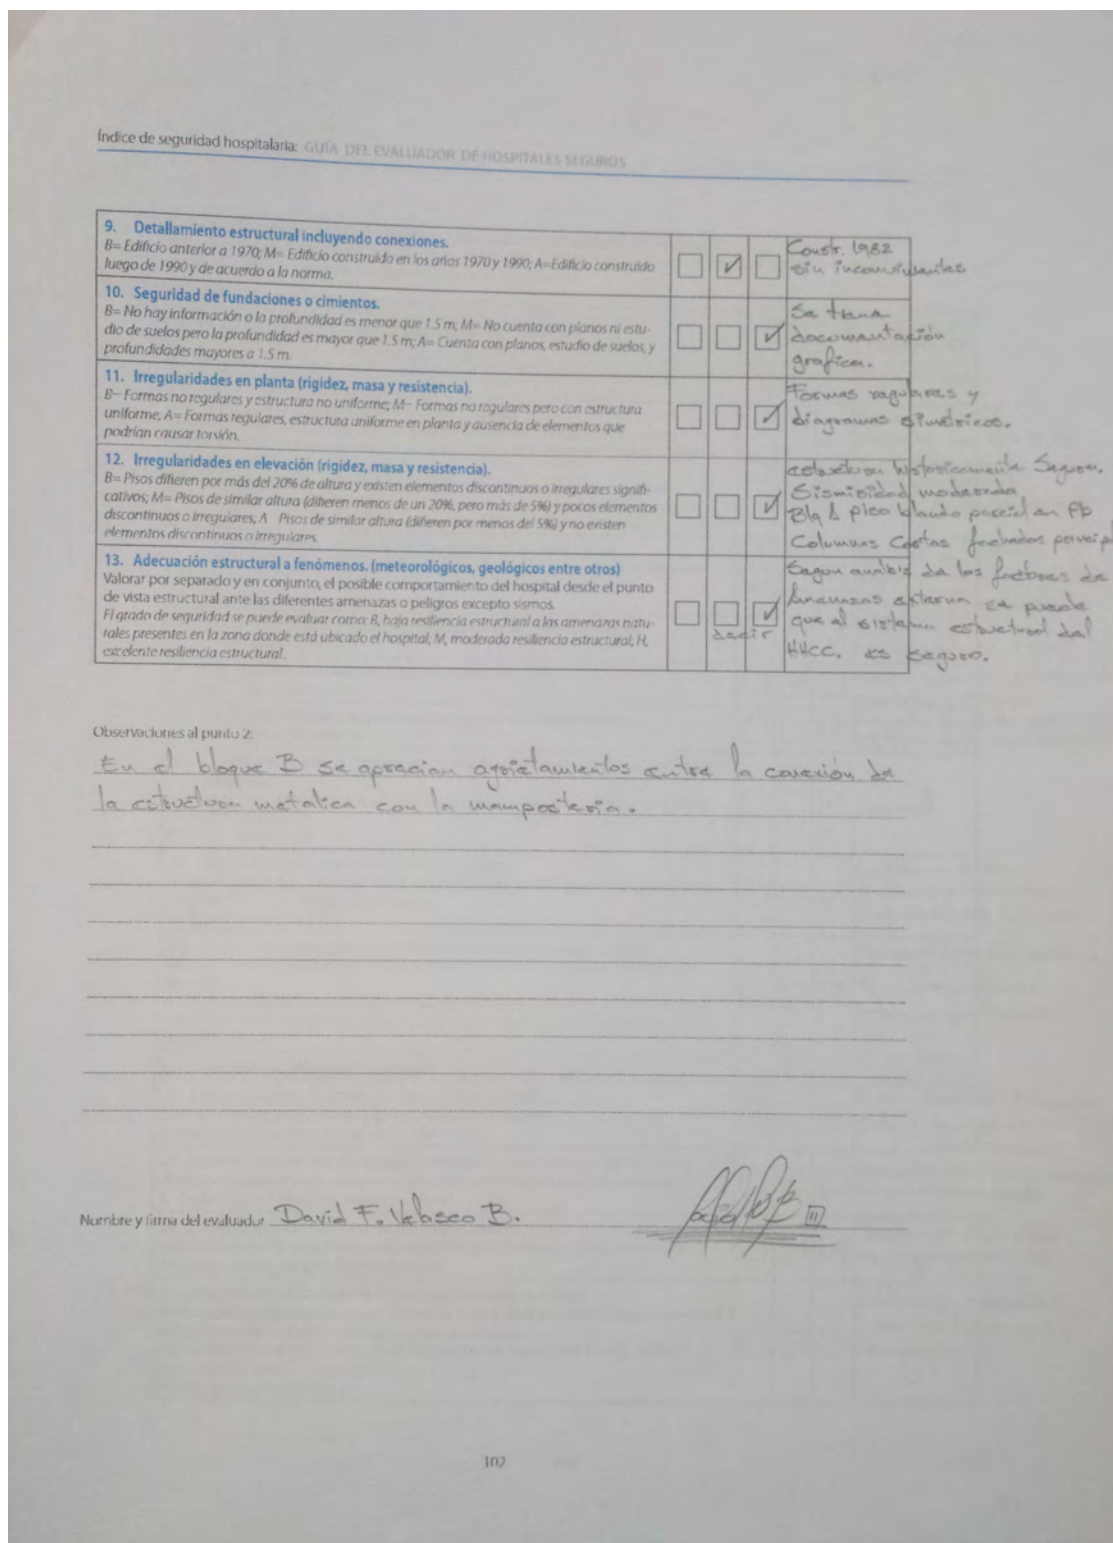 Índice de seguridad hospitalaria: GUÍA DEL EVALUADOR DE HOSPITALES SEGUROS
9. Detallamiento estructural incluyendo conexiones.
B= Edificio anterior a 1970; M= Edificio construido en los años 1970 y 1990; A=Edificio construido
luego de 1990 y de acuerdo a la norma.
Constr. 1982
sin inconvenientes
10. Seguridad de fundaciones o cimientos.
B= No hay información o la profundidad es menor que 1.5 m; M= No cuenta con planos ni estu-
dio de suelos pero la profundidad es mayor que 1.5 m; A= Cuenta con planos, estudio de suelos, y
profundidades mayores a 1.5 m.
Se tiene
documentación
grafica.
11. Irregularidades en planta (rigidez, masa y resistencia).
B= Formas no regulares y estructura no uniforme; M= Formas no regulares pero con estructura
uniforme; A= Formas regulares, estructura uniforme en planta y ausencia de elementos que
podrían causar torsión.
Formas regulares y
diagramas simetricos.
12. Irregularidades en elevación (rigidez, masa y resistencia).
B= Pisos difieren por más del 20% de altura y existen elementos discontinuos o irregulares signifi-
cativos; M= Pisos de similar altura (difieren menos de un 20%, pero más de 5%) y pocos elementos
discontinuos o irregulares; A Pisos de similar altura (difieren por menos del 5%) y no existen
elementos discontinuos o irregulares.
historicamente Segura.
Sismicidad moderada
piso blando parcial en Pb
Columnas Cortas fachadas
13. Adecuación estructural a fenómenos. (meteorológicos, geológicos entre otros)
Valorar por separado y en conjunto, el posible comportamiento del hospital desde el punto
de vista estructural ante las diferentes amenazas o peligros excepto sismos.
El grado de seguridad se puede evaluar como: B, baja resiliencia estructural a las amenazas natu-
rales presentes en la zona donde está ubicado el hospital; M, moderada resiliencia estructural; H,
excelente resiliencia estructural.
Segun analisis de los factores de
Amenazas externa se puede
decir que el sistema estructural del
HHCC. es seguro.
Observaciones al punto 2:
En el bloque B se aprecian agrietamientos entre la conexión de
la estructura metalica con la mamposteria.
Nombre y firma del evaluador David F. Velasco B.
102